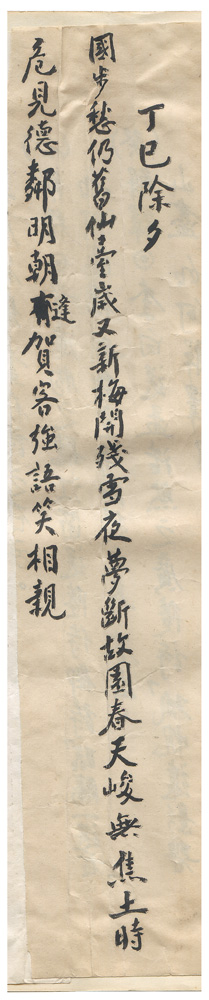 丁巳除夕
國步愁仍舊仙臺歲又新梅開殘雪夜夢斷故園春天峻無焦土時
危見德鄰明朝逢賀客強語笑相親